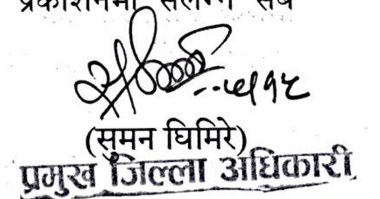 प्रकाशनमा संलग्न सबै
(सुमन घिमिरे)
प्रमुख जिल्ला अधिकारी